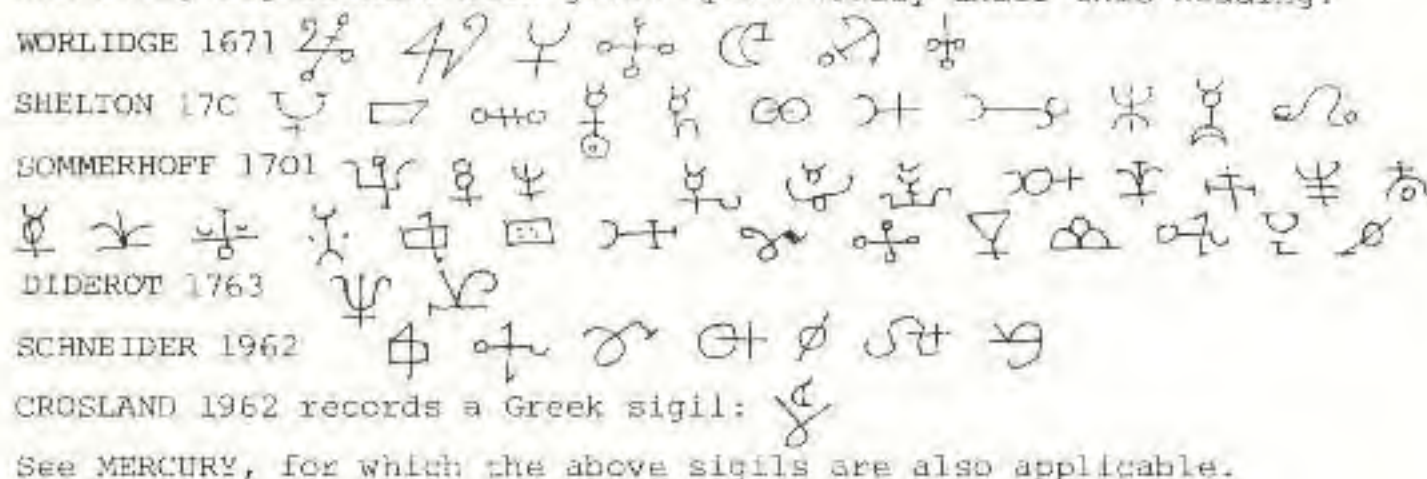 WORLIDGE 1671
SHELTON 17C
SOMMERHOFF 1701
DIDEROT 1763
SCHNEIDER 1962
CROSLAND 1962 records a Greek sigil:
See MERCURY, for which the above sigils are also applicable.